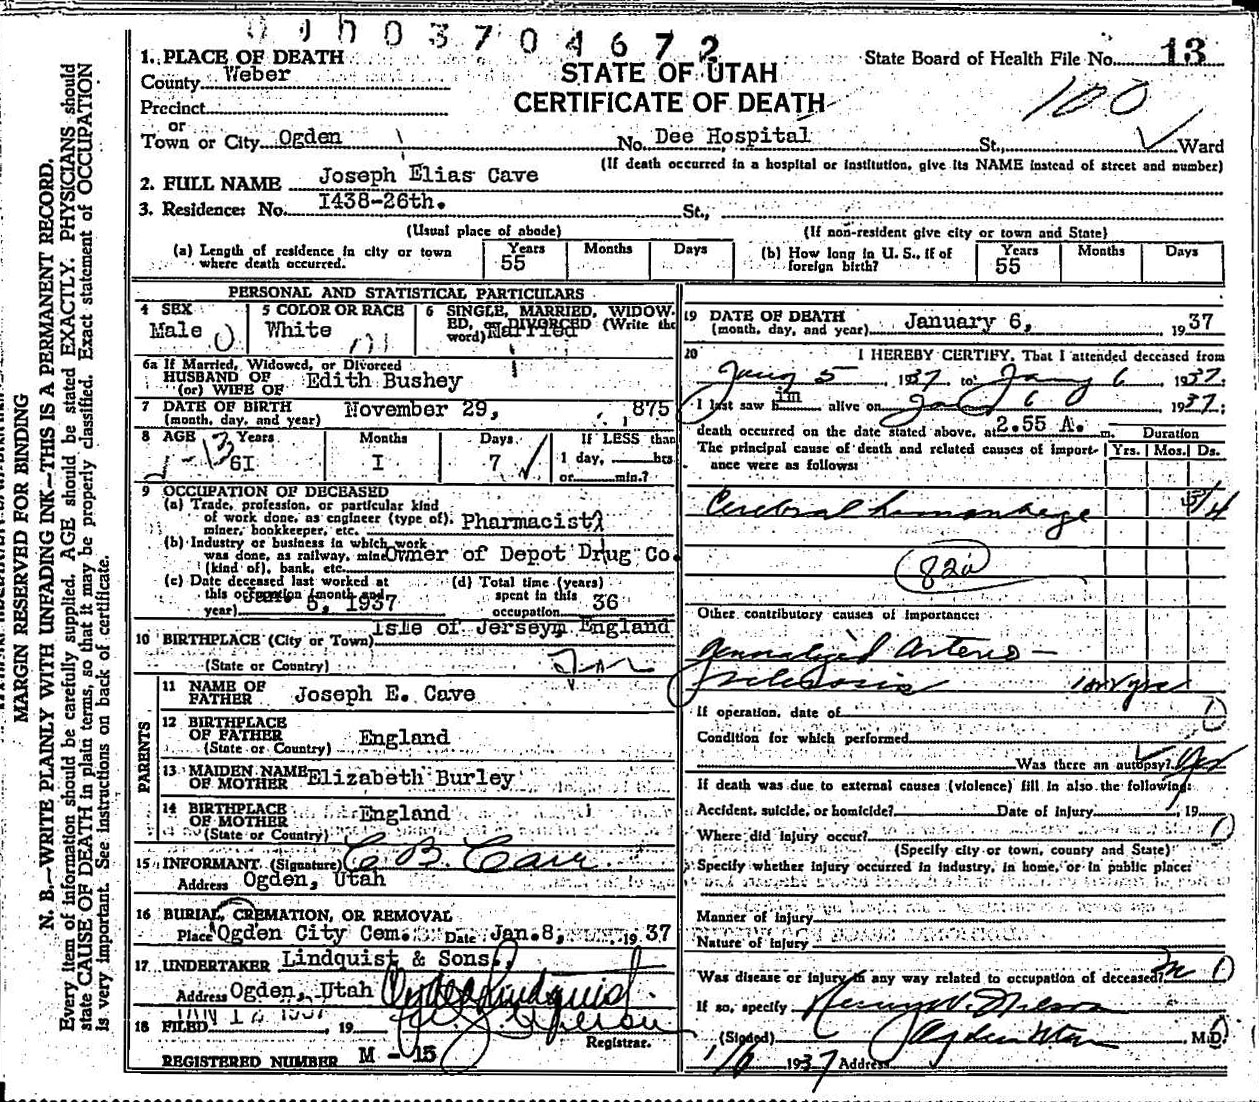 0 1 0 0 3 7 0 4 6 7 2
1. PLACE OF DEATH
County Weber
STATE OF UTAH
CERTIFICATE OF DEATH
State Board of Health File No. 13
100
Precinct
or
Town or City Ogden No. Dee Hospital St., Ward
(If death occurred in a hospital or institution, give its NAME instead of street and number)
2. FULL NAME Joseph Elias Cave
3. Residence: No. I438-26th. St.,
(Usual place of abode) (If non-resident give city or town and State)
(a) Length of residence in city or town where death occurred. Years 55 Months Days
(b) How long in U. S., if of foreign birth? Years 55 Months Days
PERSONAL AND STATISTICAL PARTICULARS
4 SEX Male
5 COLOR OR RACE White
6 SINGLE, MARRIED, WIDOWED, or DIVORCED (Write the word) Married
6a If Married, Widowed, or Divorced
HUSBAND OF
(or) WIFE OF Edith Bushey
7 DATE OF BIRTH
(month, day, and year) November 29, 1875
8 AGE Years 6I Months I Days 7
If LESS than
1 day, hrs
or min.?
9 OCCUPATION OF DECEASED
(a) Trade, profession, or particular kind
of work done, as engineer (type of), Pharmacist
miner, bookkeeper, etc.
(b) Industry or business in which work
was done, as railway, mine Owner of Depot Drug Co.
(kind of), bank, etc.
(c) Date deceased last worked at
this occupation (month and
year) Jan. 5, 1937
(d) Total time (years)
spent in this
occupation 36
10 BIRTHPLACE (City or Town) Isle of Jerseym England
(State or Country)
PARENTS
11 NAME OF
FATHER Joseph E. Cave
12 BIRTHPLACE
OF FATHER England
(State or Country)
13 MAIDEN NAME
OF MOTHER Elizabeth Burley
14 BIRTHPLACE
OF MOTHER England
(State or Country)
15 INFORMANT (Signature) C. B. Cave
Address Ogden, Utah
16 BURIAL, CREMATION, OR REMOVAL
Place Ogden City Cem. Date Jan. 8, 1937
17 UNDERTAKER Lindquist & Sons.
Address Ogden, Utah
18 FILED JAN 12 1937, 19
Registrar.
REGISTERED NUMBER M - 15
19 DATE OF DEATH
(month, day, and year) January 6, 1937
20 I HEREBY CERTIFY, That I attended deceased from
Jany 5, 1937 to Jany 6, 1937.
I last saw him alive on Jany 6 1937;
death occurred on the date stated above, at 2.55 A. m. Duration
The principal cause of death and related causes of importance were as follows: Yrs. Mos. Ds.
Cerebral hemorrhage 3/4
82a
Other contributory causes of importance:
Generalized Arterio-
sclerosis
If operation, date of
Condition for which performed
Was there an autopsy? Yes
If death was due to external causes (violence) fill in also the following:
Accident, suicide, or homicide? Date of injury, 19
Where did injury occur?
(Specify city or town, county and State)
Specify whether injury occurred in industry, in home, or in public place:
Manner of injury
Nature of injury
Was disease or injury in any way related to occupation of deceased? no
If so, specify
(Signed) M.D.
1/6 1937 Address Ogden Utah
MARGIN RESERVED FOR BINDING
N. B.—WRITE PLAINLY WITH UNFADING INK—THIS IS A PERMANENT RECORD.
Every item of information should be carefully supplied. AGE should be stated EXACTLY. PHYSICIANS should
state CAUSE OF DEATH in plain terms, so that it may be properly classified. Exact statement of OCCUPATION
is very important. See instructions on back of certificate.